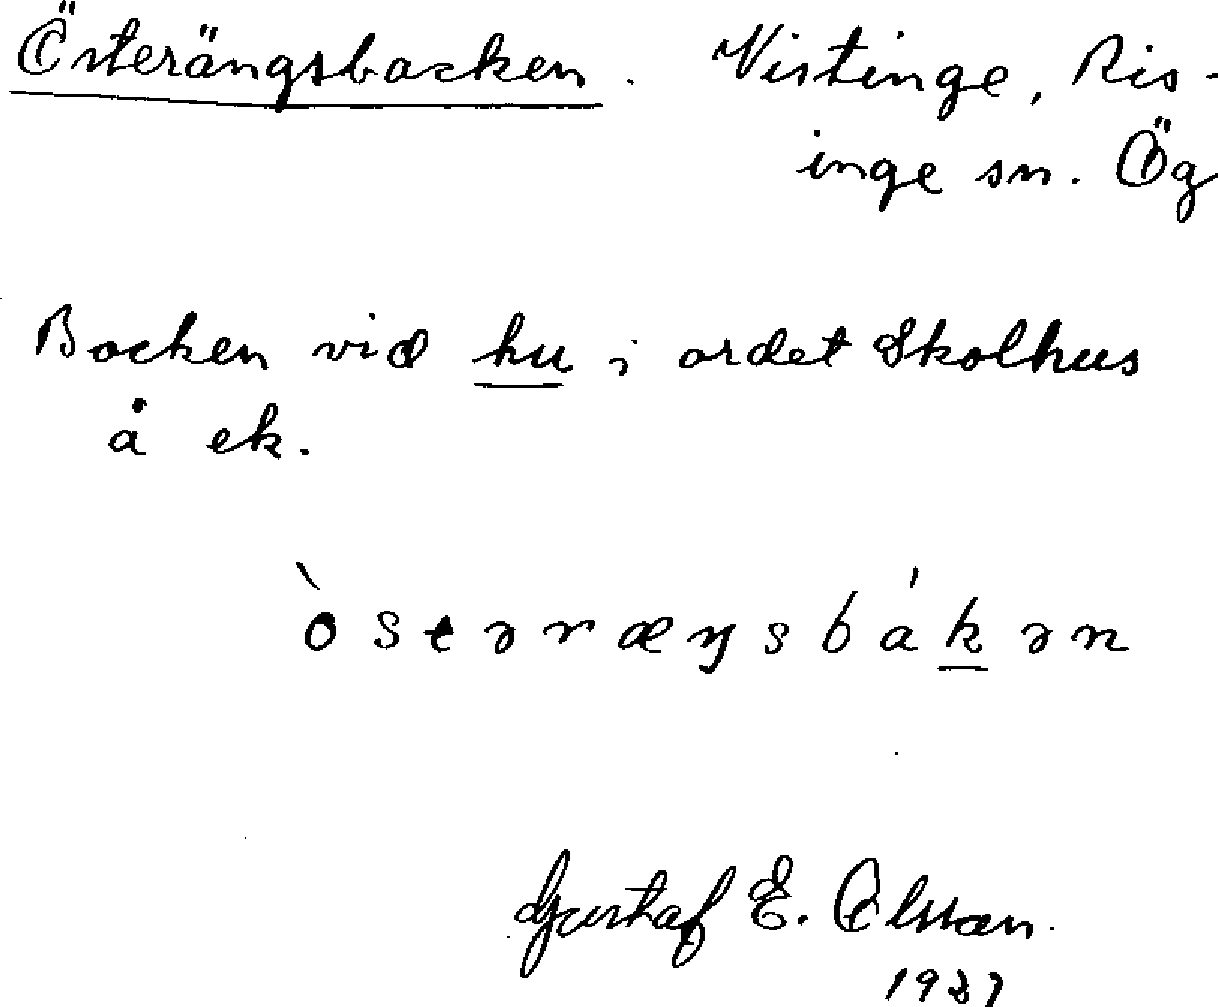 Österängsbacken. Vistinge, Ris-
inge sn. Ög
Backen vid hu i ordet Skolhus
å ek.
òstərræŋsbákən
Gustaf E. Olsson.
1937